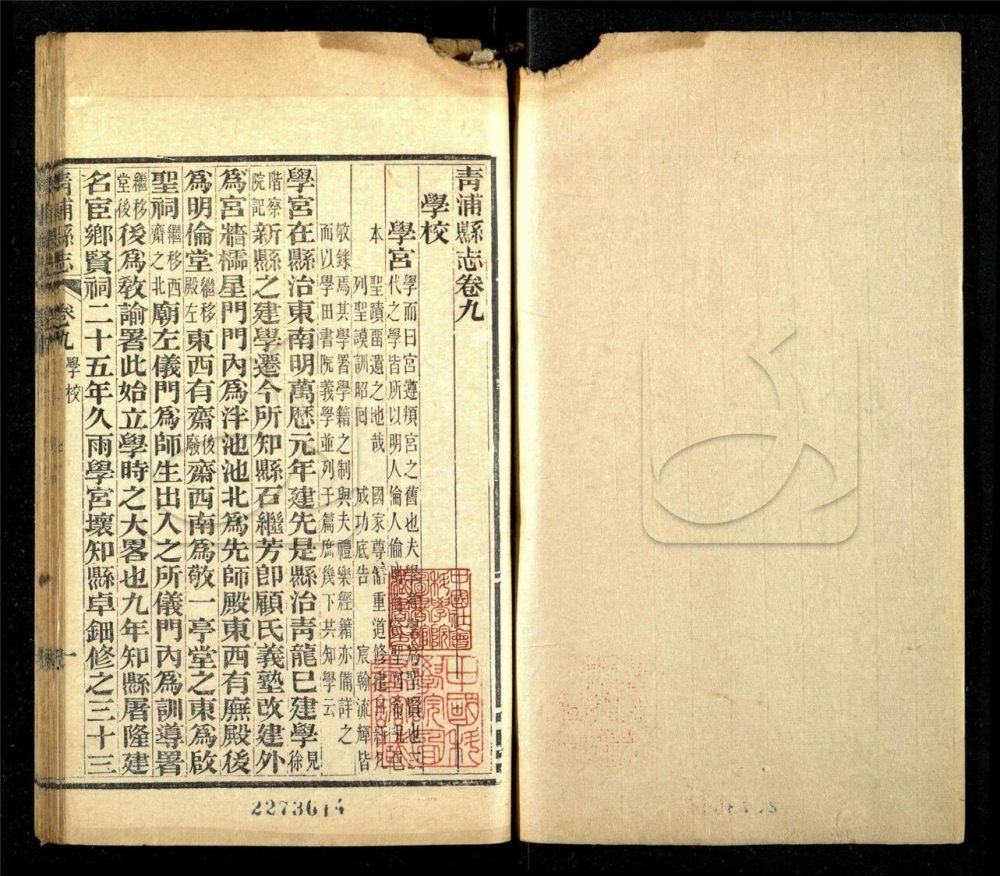 青浦縣志卷九
學校
學宮
學而曰宮遵頖宮之舊也夫學
代之學皆所以明人倫人倫
本
聖蹟畱遺之地哉 國家尊儒重道修建
列聖謨訓昭回 成功底告 宸翰流輝皆
敬錄焉其學署學籍之制與夫禮樂經籍亦備詳之
而以學田書院義學並列于篇庶幾下共知學云
學宮在縣治東南明萬厯元年建先是縣治青龍已建學見徐
階察院記新縣之建學遷今所知縣石繼芳卽顧氏義塾改建外
爲宮牆櫺星門門內爲泮池池北爲先師殿東西有廡殿後
爲明倫堂繼移殿左東西有齋後廢齋西南爲敬一亭堂之東爲啟
聖祠繼移西齋之北廟左儀門爲師生出入之所儀門內爲訓導署
繼移堂後後爲敎諭署此始立學時之大畧也九年知縣屠隆建
名宦鄉賢祠二十五年久雨學宮壞知縣卓鈿修之三十三
青浦縣志
卷九
學校
一
中國社會科學院
中國科學院
2273614